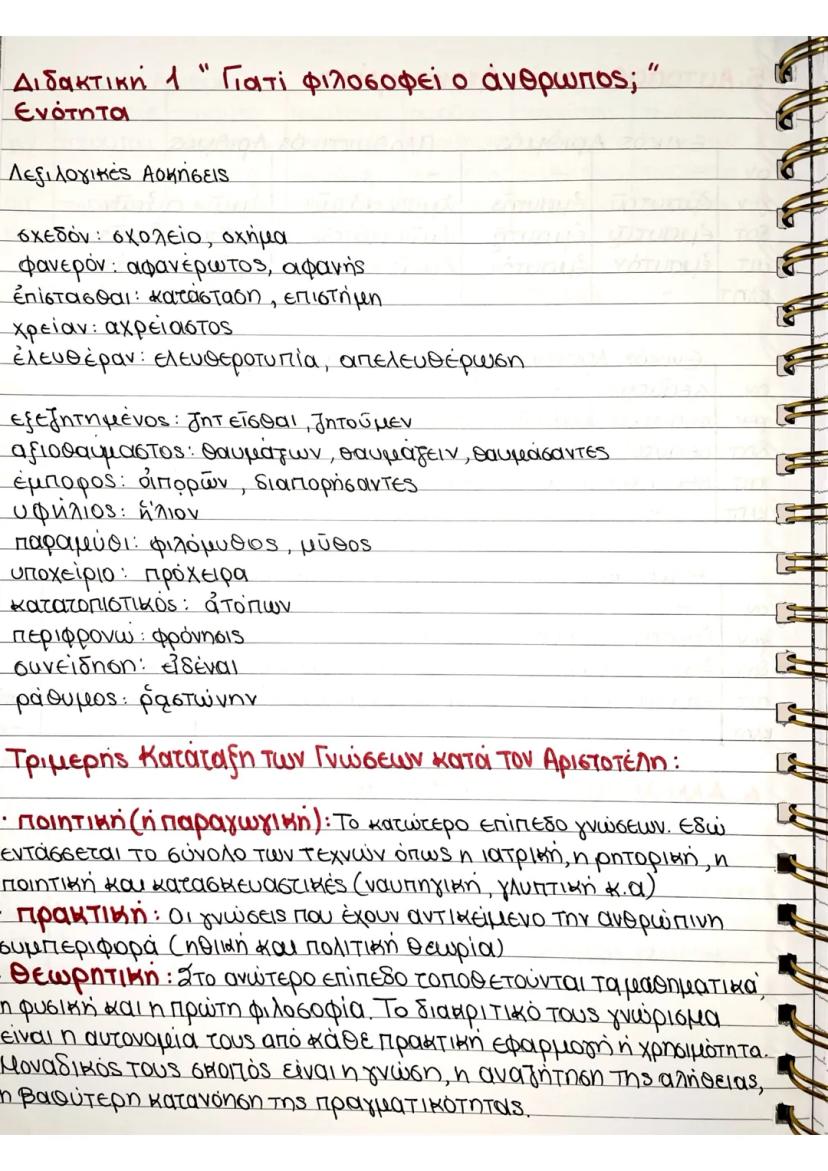 Διδακτική 1 "Γιατί φιλοσοφεί ο άνθρωπος;"
Ενότητα
Λεξιλογικές Ασκήσεις
σχεδόν: σχολείο, σχήμα
φανερόν: αφανέρωτος, αφανής
ἐπίστασθαι: κατάσταση, επιστήμη
χρείαν: αχρείαστος
ἐλευθέραν: ελευθεροτυπία, απελευθέρωση
εξεζητημένος: ζητεῖσθαι, ζητοῦμεν
αξιοθαύμαστος: θαυμάζων, θαυμάζειν, θαυμάσαντες
έμπορος: ἀπορῶν, διαπορήσαντες
υφήλιος: ἥλιον
παραμύθι: φιλόμυθος, μῦθος
υποχείριο: πρόχειρα
κατατοπιστικός: ἀτόπων
περιφρονώ: φρόνησις
συνείδηση: εἰδέναι
ράθυμος: ῥᾳστώνην
Τριμερής Κατάταξη των Γνώσεων κατά τον Αριστοτέλη:
· Ποιητική (ή παραγωγική): Το κατώτερο επίπεδο γνώσεων. Εδώ
εντάσσεται το σύνολο των τεχνών όπως η ιατρική, η ρητορική, η
ποιητική και κατασκευαστικές (ναυπηγική, γλυπτική κ.α)
· Πρακτική: Οι γνώσεις που έχουν αντικείμενο την ανθρώπινη
συμπεριφορά (ηθική και πολιτική θεωρία)
· Θεωρητική: Στο ανώτερο επίπεδο τοποθετούνται τα μαθηματικά,
η φυσική και η πρώτη φιλοσοφία. Το διακριτικό τους γνώρισμα
είναι η αυτονομία τους από κάθε πρακτική εφαρμογή ή χρησιμότητα.
Μοναδικός τους σκοπός είναι η γνώση, η αναζήτηση της αλήθειας,
η βαθύτερη κατανόηση της πραγματικότητας.